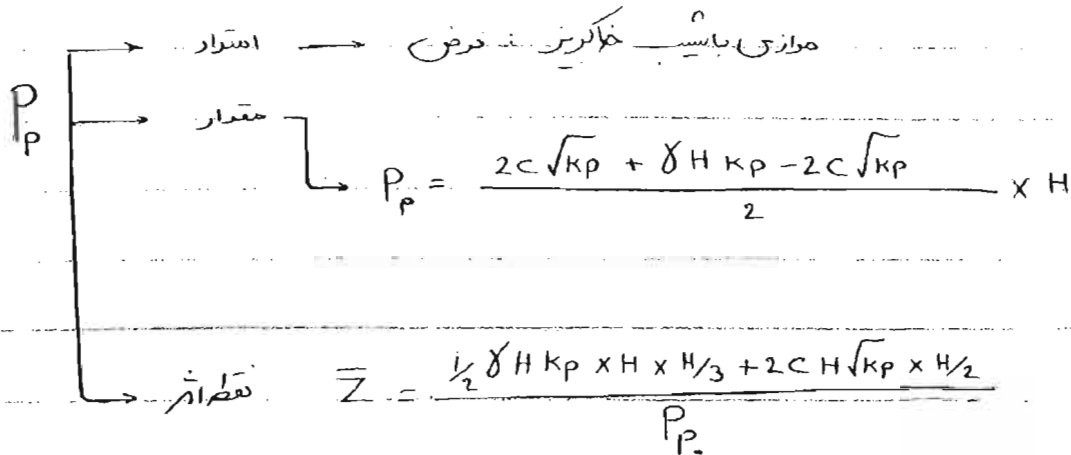 امتداد → موازی باشیب خاکریز فرض
P_p
مقدار
P_p = (2c√kp + γ H kp - 2c√kp) / 2 × H
نقطه اثر Z̄ = (1/2 γ H kp × H × H/3 + 2c H√kp × H/2) / P_p.